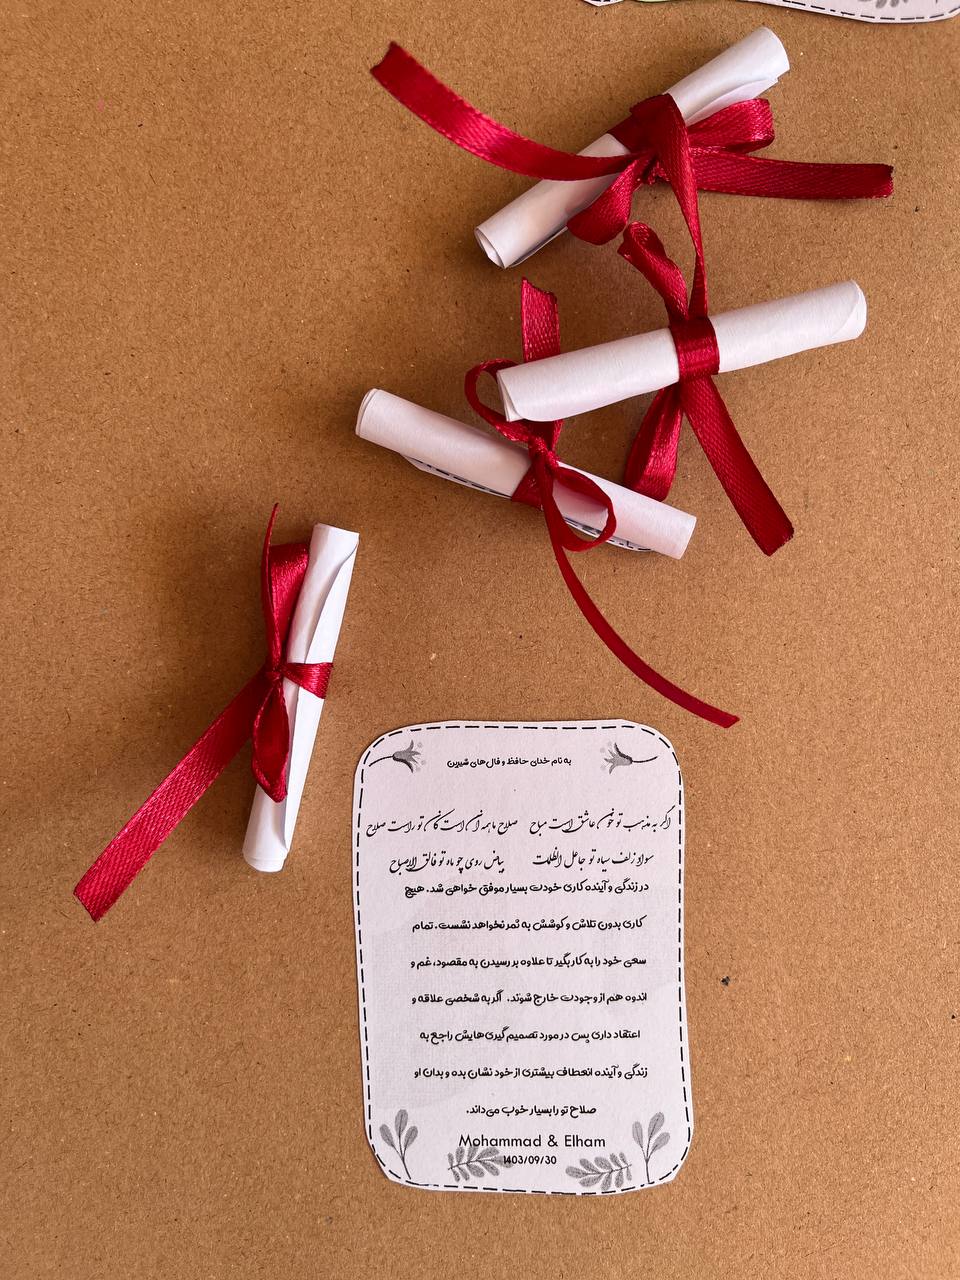 به نام خدای حافظ و فال‌های شیرین
اگر به مذهب تو خون عاشق است مباح صلاح ما همه آن است کان تو راست صلاح
سواد زلف سیاه تو جاعل الظلمات بیاض روی چو ماه تو فالق الاصباح
در زندگی و آینده کاری خودت بسیار موفق خواهی شد. هیچ
کاری بدون تلاش و کوشش به ثمر نخواهد نشست. تمام
سعی خود را به کار بگیر تا علاوه بر رسیدن به مقصود، غم و
اندوه هم از وجودت خارج شوند. اگر به شخصی علاقه و
اعتقاد داری پس در مورد تصمیم گیری‌هایش راجع به
زندگی و آینده انعطاف بیشتری از خود نشان بده و بدان او
صلاح تو را بسیار خوب می‌داند.
Mohammad & Elham
1403/09/30